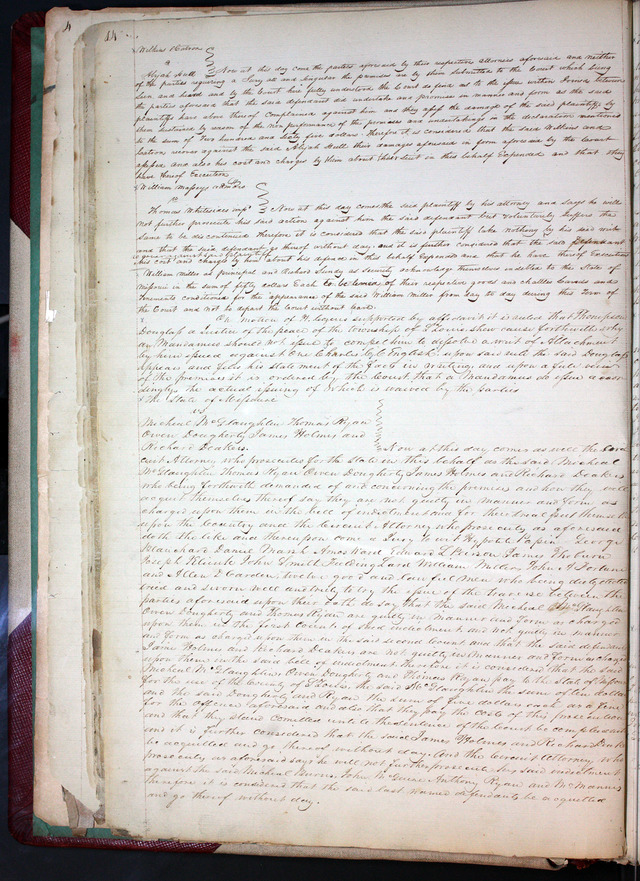 4
14
Wilkins & Eatson
Alijah Hull Now at this day come the parties aforesaid by their respective attornies aforesaid and neither
of the parties requiring a Jury all and singular the premises are by them submitted to the Court which being
seen and heard and by the Court here fully understood the Court do find as to the issue within Joined between
the parties aforesaid that the said defendant did undertake and promise in manner and form as the said
plaintiffs have above thereof complained against him and they assess the damage of the said plaintiffs by
them sustained by reason of the non performance of the promises and undertakings in the declaration mentioned
to the sum of Two hundred and sixty five dollars. Therefore it is considered that the said Wilkins and
recover against the said Alijah Hull their damages aforesaid in form aforesaid by the Court
assessed and also his cost and charges by them about their suit in this behalf Expended and that they
have thereof Execution
William Masseys
vs
Thomas Whitesides Now at this day comes the said plaintiff by his attorney and says he will
not further prosecute his said action against him the said defendant but voluntarily suffers the
same to be discontinued Therefore it is considered that the said plaintiff take nothing by his said writ
and that the said defendant go thereof without day. and it is further considered that the said Defendant
recover against said plaintiff
his cost and charges by him about his defence in this behalf Expended and that he have thereof Execution
William Miller as principal and Richard Lundy as security acknowledge themselves indebted to the State of
Missouri in the sum of fifty dollars Each to be levied of their respective goods and chattles Lands and
Tenements conditioned for the appearance of the said William Miller from day to day during this Term of
the Court and not to depart the Court without leave.
On motion of H. supported by affidavit it is ruled that Thompson
Douglass a Justice of the peace of the township of St Louis shew cause forthwith why
a Mandamus should not issue to compel him to dissolve a writ of Attachment
by him issued against one Charles C English. upon said rule the said Douglass
appears and files his statement of the facts in writing and upon a full view
of the premises it is ordered by the Court that a Mandamus do issue accor
dingly the actual issuing of which is waived by the parties
The State of Missouri
vs
Micheal McGlaughlin Thomas Ryan
Owen Dougherty James Holmes and
Richard Deakers. Now at this day comes as well the Cir
cuit Attorney who prosecutes for the State in this behalf as the said Micheal
McGlaughlin Thomas Ryan Owen Dougherty James Holmes and Richard Deakers
who being forthwith demanded of and concerning the premises and how they will
acquit themselves thereof say they are not guilty in manner and form as
charged upon them in the bill of indictment and for their trial put themselves
upon the Country and the Circuit Attorney who prosecutes as aforesaid
doth the like and thereupon come a Jury to wit Hypolite Papin George
Blanchard Daniel Marsh Amos Ward Edward L Benson James Thoburn
Joseph John Smith Fielding Lard William Millers John A Fortune
and Allen D Carden twelve good and lawful men who being duly elected
tried and sworn well and truly to try the issue of the traverse between the
parties aforesaid upon their oath do say that the said Micheal McGlaughlin
Owen Dougherty and Thomas Ryan are guilty in manner and form as charged
upon them in the first Count of said indictment and not guilty in manner
and form as charged upon them in the said second Count and that the said defendants
Jame Holmes and Richard Deakers are not guilty in manner and form as charged
upon them in the said bill of indictment therefore it is considered that the said
Micheal McGlaughlin Owen Dougherty and Thomas Ryan pay to the State of Missouri
for the use of the County of St Louis, he said McGlaughlin the sum of ten dollars
and the said Dougherty and Ryan the sum of five dollars each as a fine
for the offence aforesaid and also that they pay the costs of this prosecution
and that they stand Committed until the sentence of the Court be complied with
and it is further considered that the said James Holmes and Richard Deakers
be acquitted and go thereof without day. And the Circuit Attorney who
prosecutes as aforesaid says he will not further prosecute his said indictment
against the said Micheal Burns, John McGuire Anthony Ryan and McMannus
therefore it is considered that the said last named defendants be acquitted
and go thereof without day.